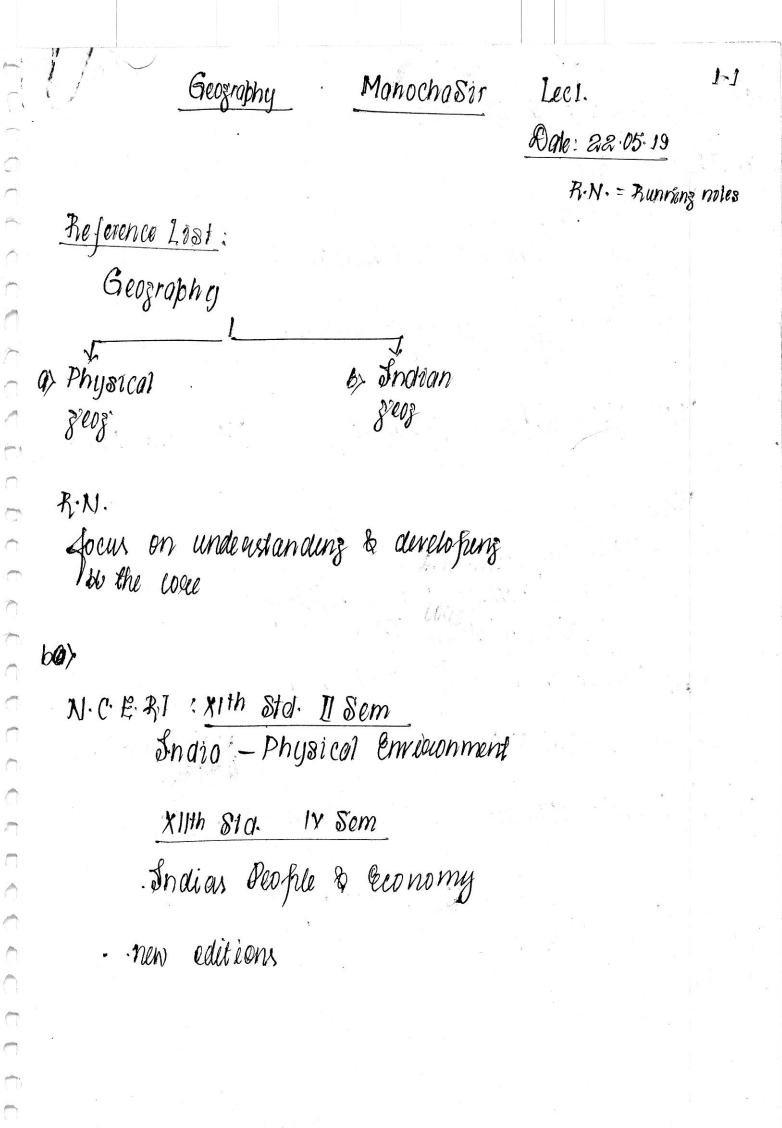 Geography ManochaSir Lec 1. 1-1
Date: 22.05.19
R.N. = Running notes
Reference List:
Geography
a) Physical b) Indian
geog. geog
R.N.
focus on understanding & developing
the core
b)
N.C.E.R.T : XIth Std. II Sem
India - Physical Environment
XIIth Std. IV Sem
Indias People & Economy
. new editions